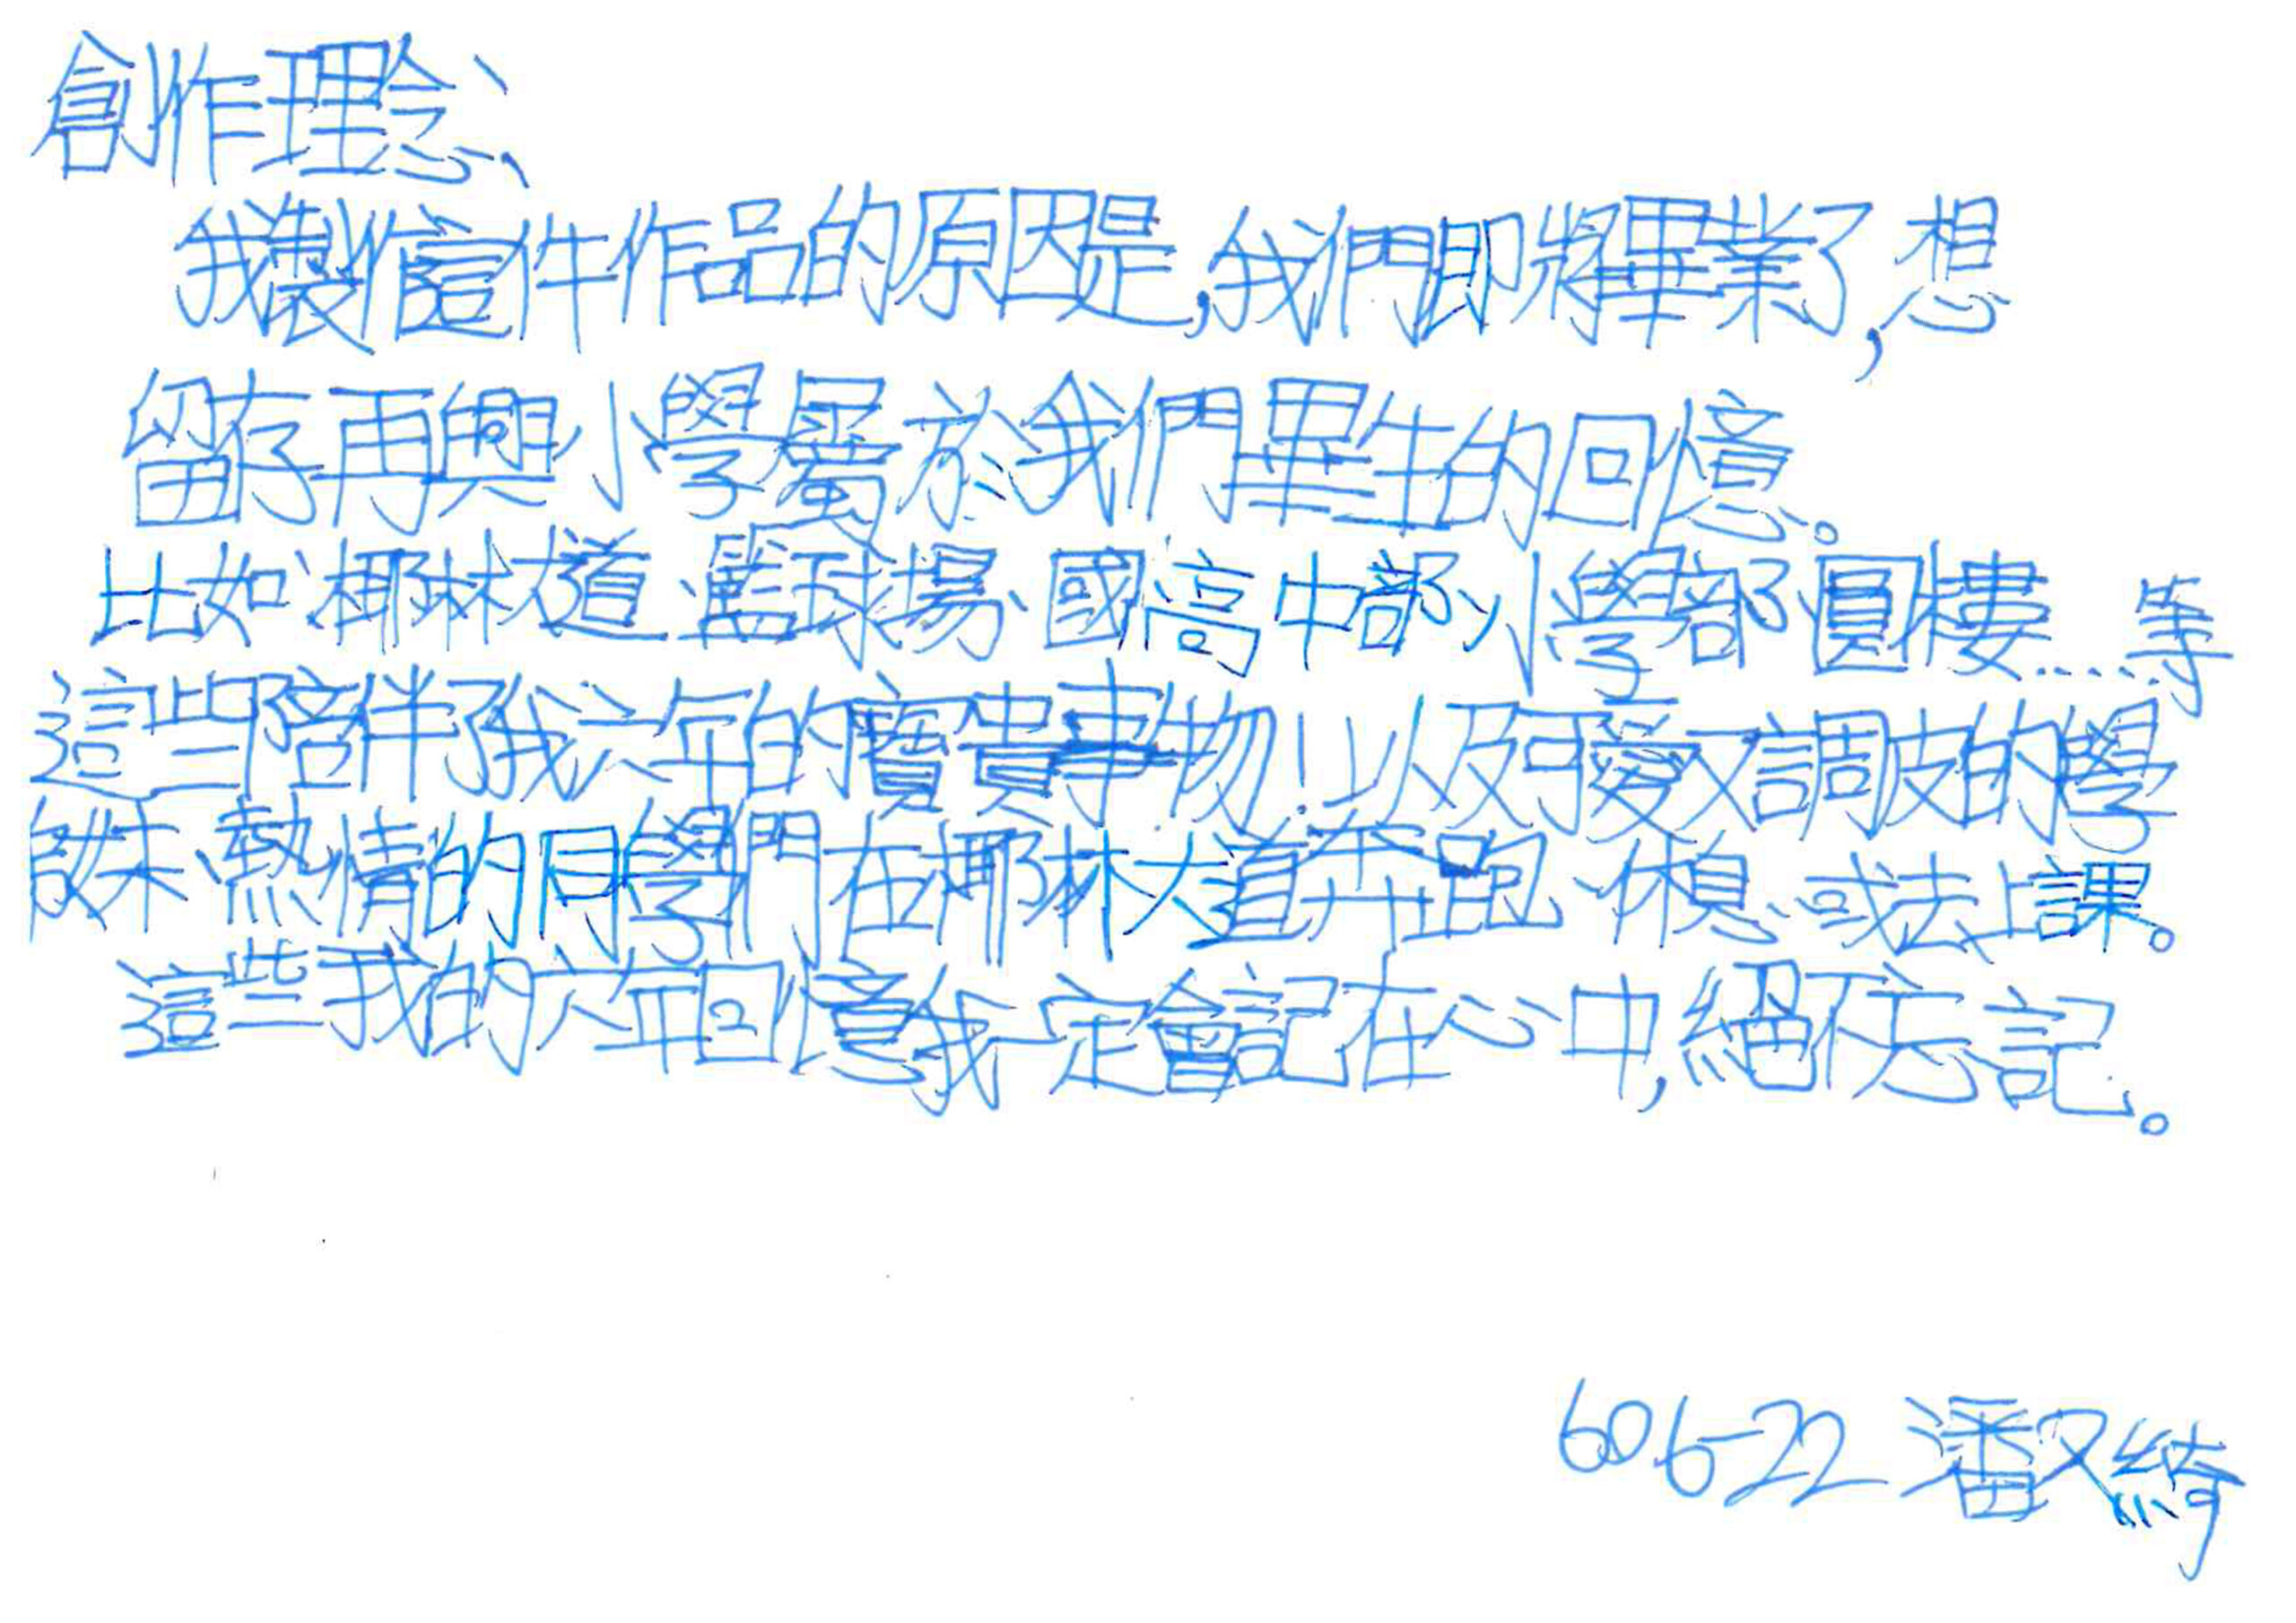 創作理念、
我製作這件作品的原因是,我們即將畢業了,想
留存再興小學屬於我們畢生的回憶。
比如、椰林大道、籃球場、國高中部小學部圓樓....等
這些陪伴了我六年的寶貴事物!以及可愛又調皮的學
妹、熱情的同學們在椰林大道奔跑、休息、或去上課。
這些我的六年回憶我一定會記在心中,絕不忘記。
606-22 潘又綺